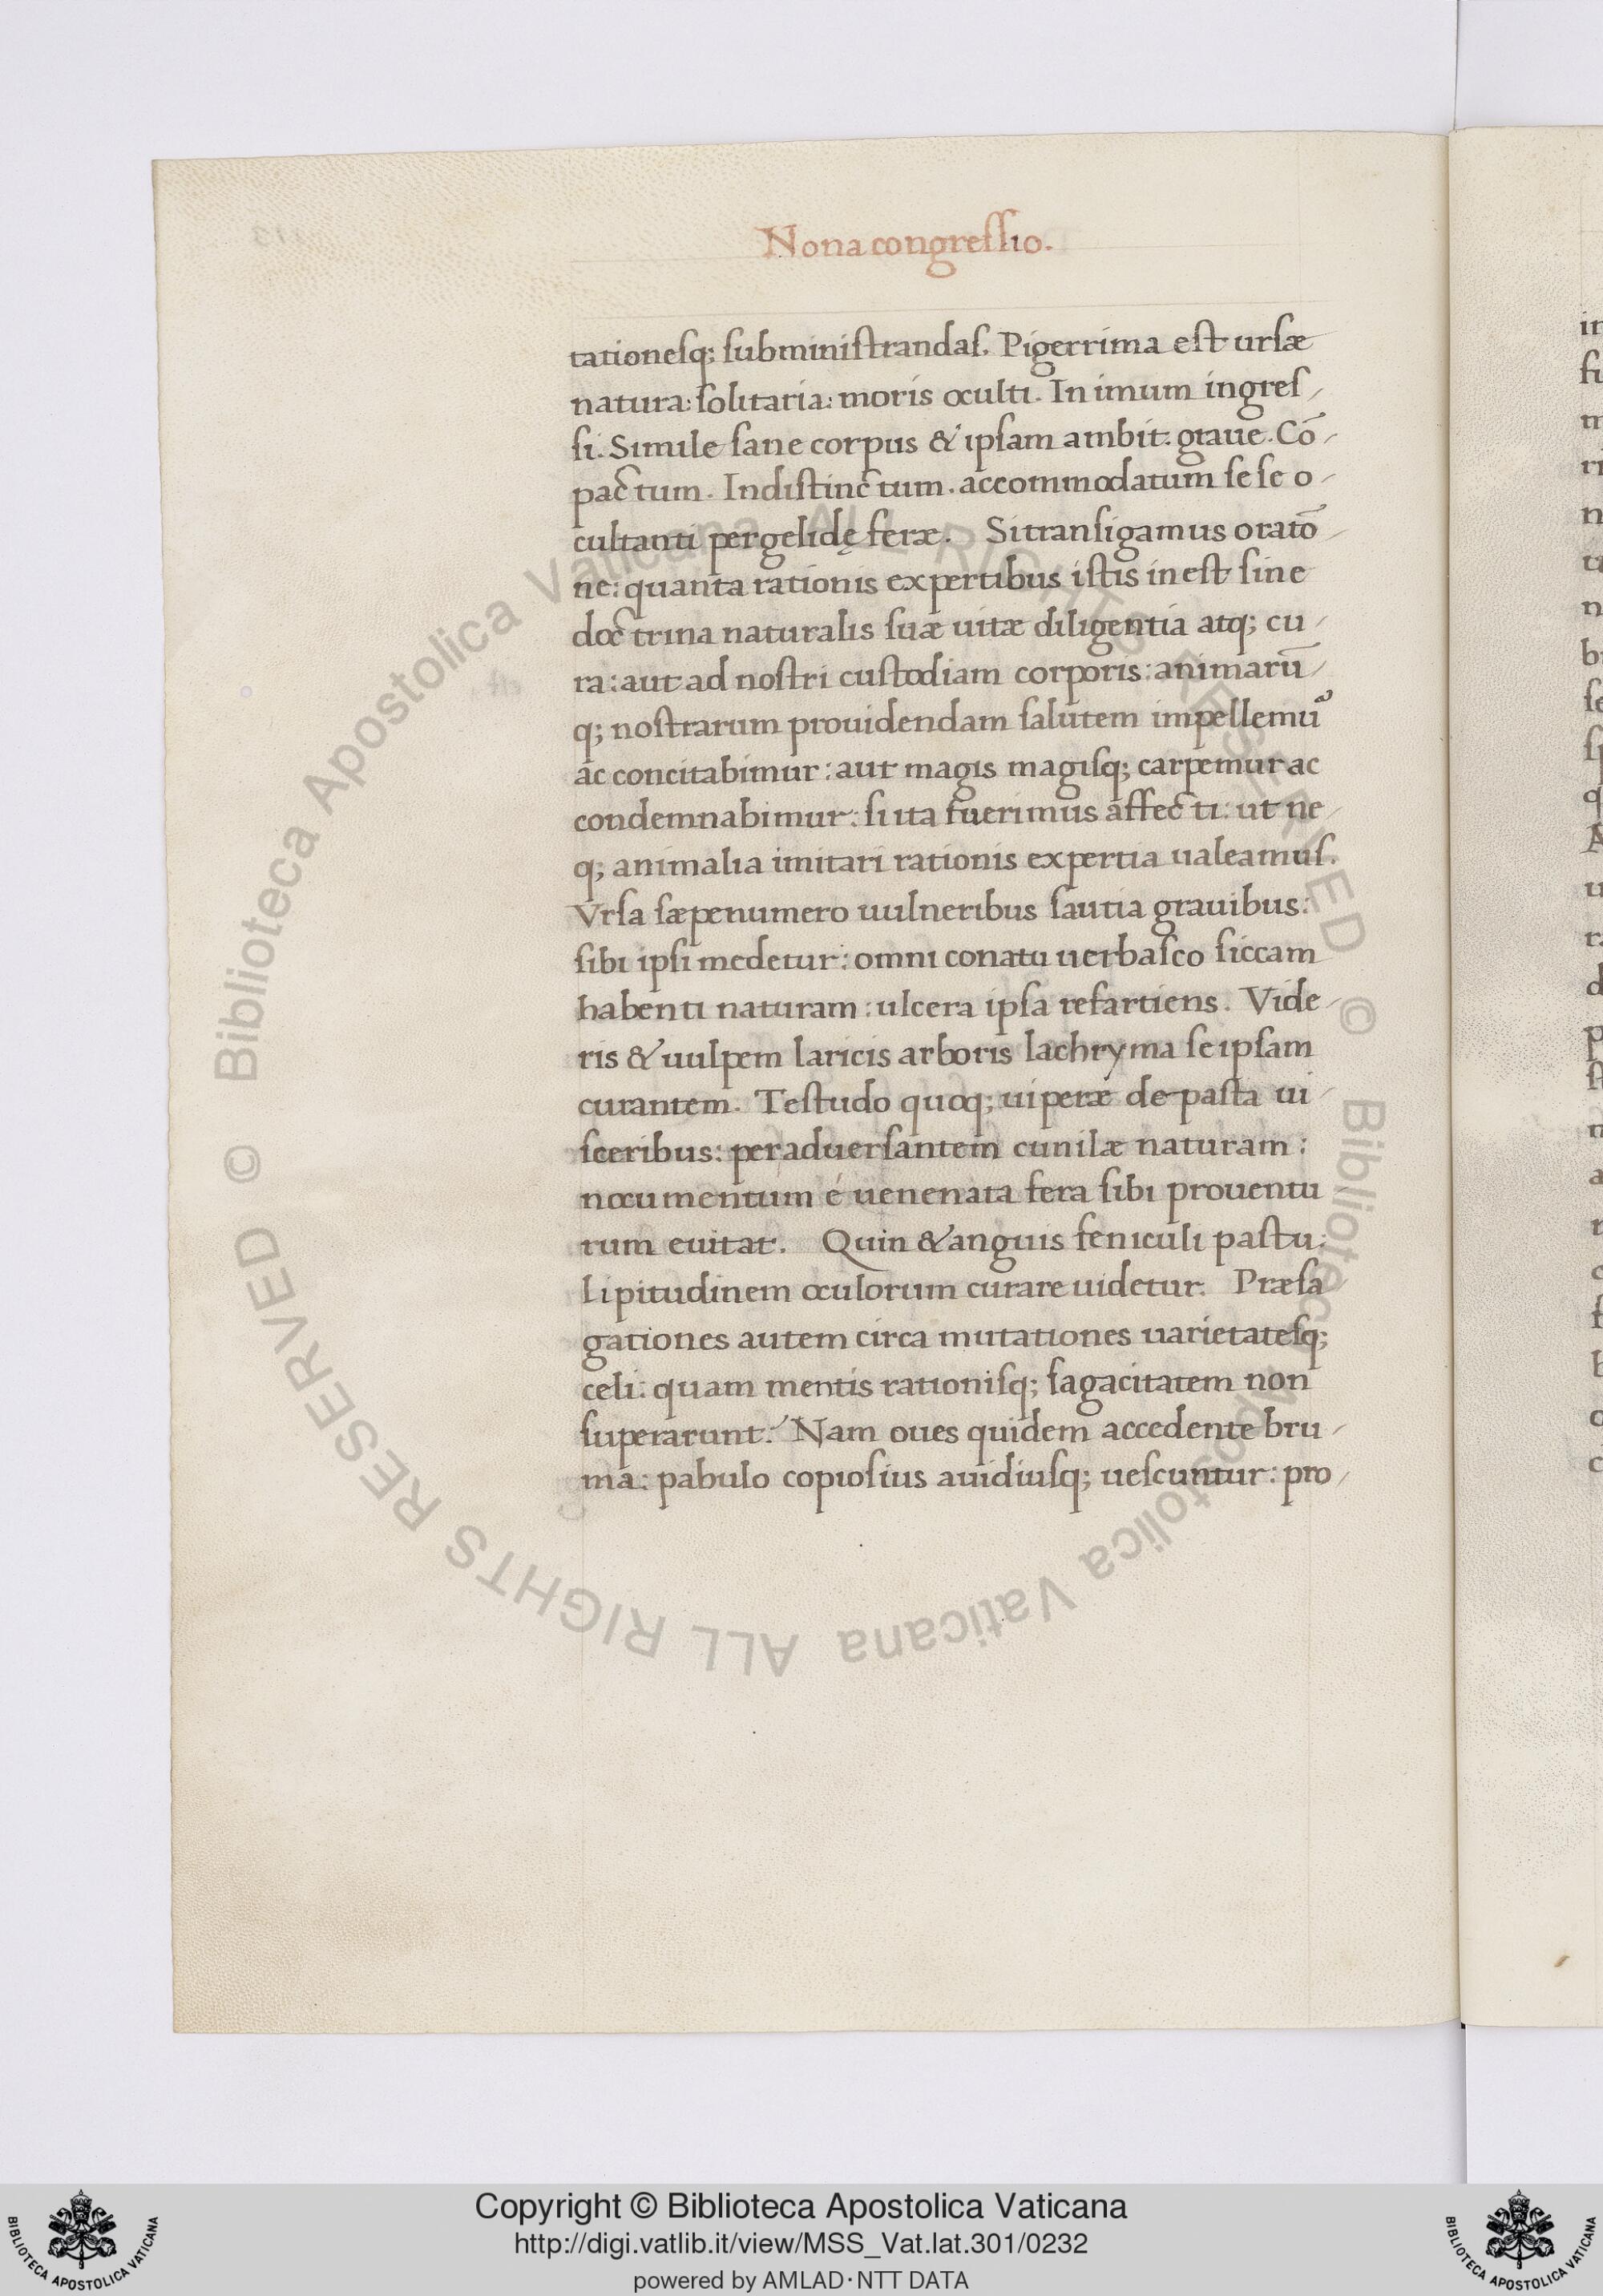 Nona congreſſio.
tationeſq; ſubminiſtrandaſ. Pigerrima eſt urſæ
natura: ſolitaria: moris oculti. In imum ingreſ-
ſi. Simile ſane corpus & ipſam ambit. graue. Cō-
pactum. Indiſtinctum. accommodatum ſe ſe o-
cultanti pergelidę feræ. Si tranſigamus oratō-
ne: quanta rationis expertibus iſtis ineſt ſine
doctrina naturalis ſuæ uitæ diligentia atq; cu-
ra: aut ad noſtri cuſtodiam corporis: animarū-
q; noſtrarum prouidendam ſalutem impellemuꝰ
ac concitabimur: aut magis magiſq; carpemur ac
condemnabimur: ſi ita fuerimus affecti: ut ne-
q; animalia imitari rationis expertia ualeamuſ.
Vrſa ſæpenumero uulneribus ſautia grauibus:
ſibi ipſi medetur: omni conatu uerbaſco ſiccam
habenti naturam: ulcera ipſa refartiens. Vide-
ris & uulpem laricis arboris lachryma ſe ipſam
curantem. Teſtudo quoq; uiperæ de paſta ui-
ſceribus: per aduerſantem cunilæ naturam:
nocumentum é uenenata fera ſibi prouentu
rum euitat. Quin & anguis feniculi paſtu:
Lipitudinem oculorum curare uidetur. Præſa-
gationes autem circa mutationes uarietateſq;
celi: quam mentis rationiſq; ſagacitatem non
ſuperarunt? Nam oues quidem accedente bru-
ma: pabulo copioſius auidiuſq; ueſcuntur: pro-
© Biblioteca Apostolica Vaticana ALL RIGHTS RESERVED
© Biblioteca Apostolica Vaticana ALL RIGHTS RESERVED
Copyright © Biblioteca Apostolica Vaticana
http://digi.vatlib.it/view/MSS_Vat.lat.301/0232
powered by AMLAD·NTT DATA
BIBLIOTECA APOSTOLICA VATICANA
BIBLIOTECA APOSTOLICA VATICANA